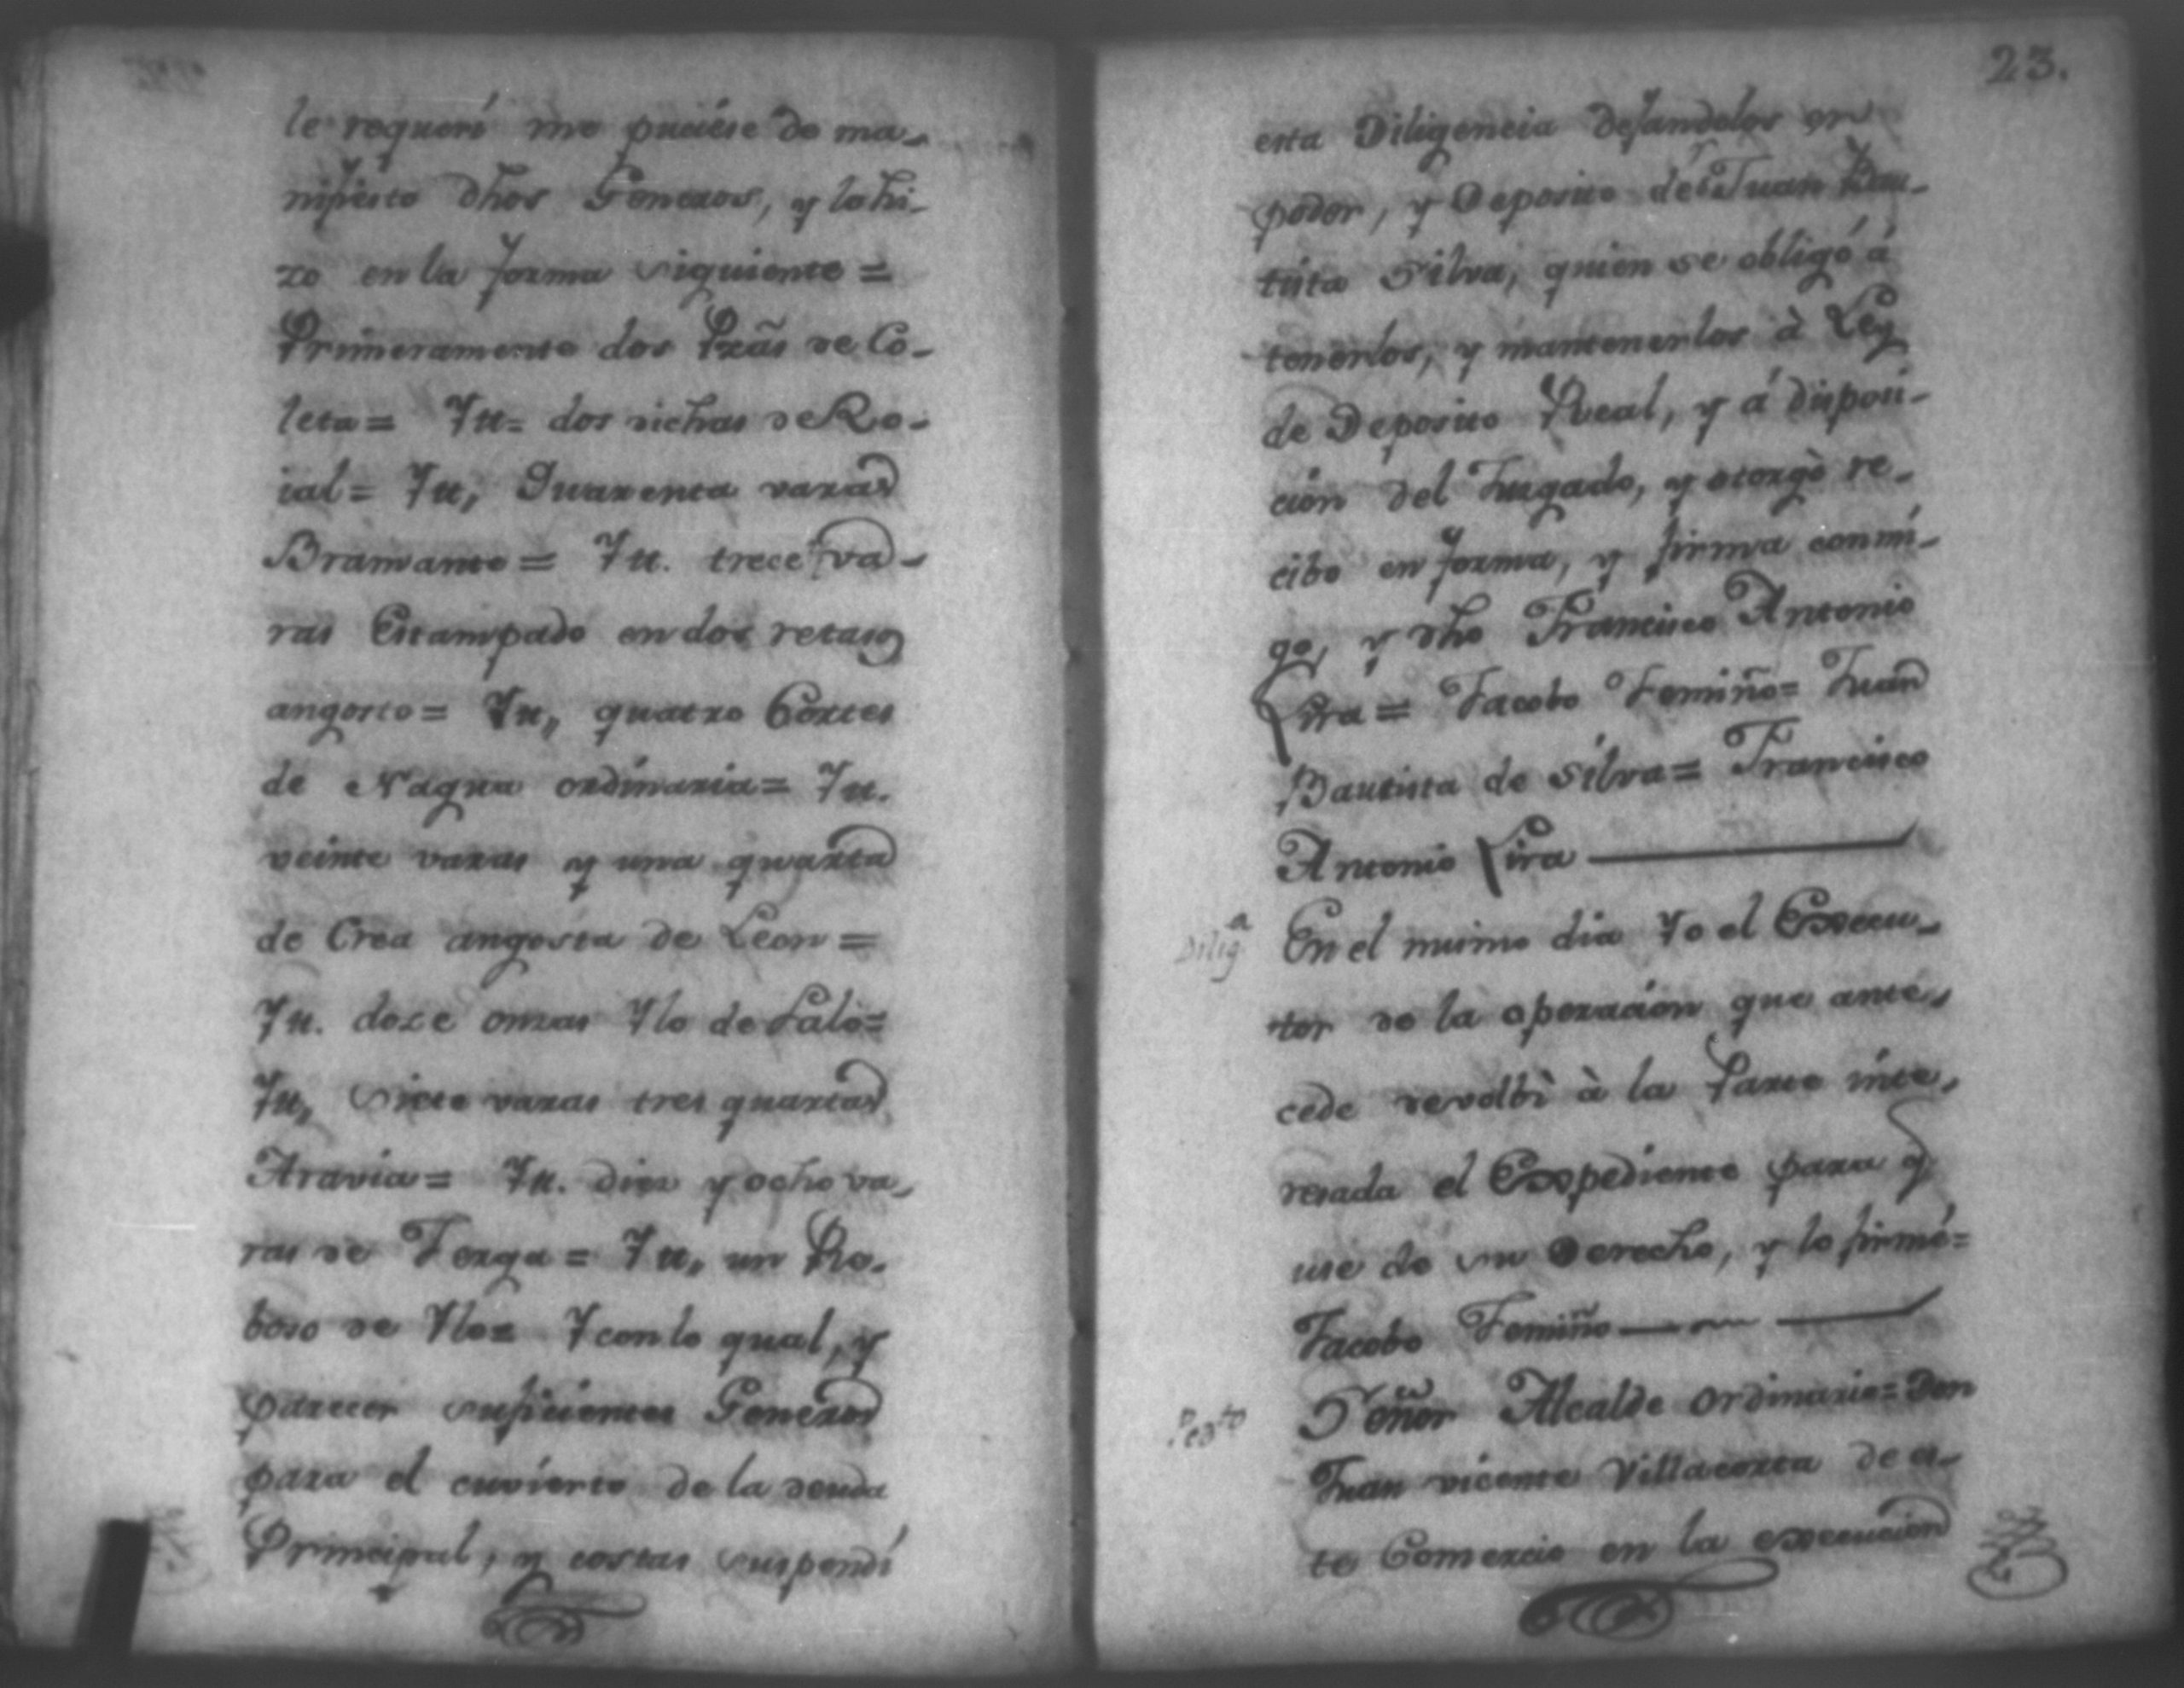 le requerí me puciése de ma-
nifiesto dhos Generos, y lo hi-
zo en la forma siguiente =
Primeramente dos Pzãs de Co-
leta = Yt= dos dichas de Ro-
ial = Yt, Quarenta varas
Bramante = Yt. trece va-
ras Estampado en dos retasos
angosto = Yt, quatro Cortes
de Nagua ordinaria = Yt.
veinte varas y una quarta
de Crea angosta de Leon =
Yt. doze onzas Ylo de
Yt, Siete varas tres quartas
Aravia = Yt. diez y ocho va-
ras de Xerga = Yt, un Re-
boso de Ylo = Y con lo qual, y
parecer suficientes Generos
para el cuvierto de la deuda
Principal, y costas suspendí
23.
esta Diligencia dejandolos en
poder, y Deposito de Juan Bau-
tista Silva, quien se obligó á
tenerlos, y mantenerlos à Ley
de Deposito Real, y á disposi-
ción del Juzgado, y otorgò re-
cibo en forma, y firma conmi-
go, y dho Francisco Antonio
Lira = Jacobo Temiño = Juan
Bautista de Silva = Francisco
Antonio Lira
Diligª
En el mismo dia Yo el Execu-
tor de la operación que ante-
cede devolbì à la Parte inte-
resada el Expediente para q
use de su Derecho, y lo firmé =
Jacobo Temiño
Pedto
Señor Alcalde Ordinario = Don
Juan vicente Villacorta de es-
te Comercio en la execución